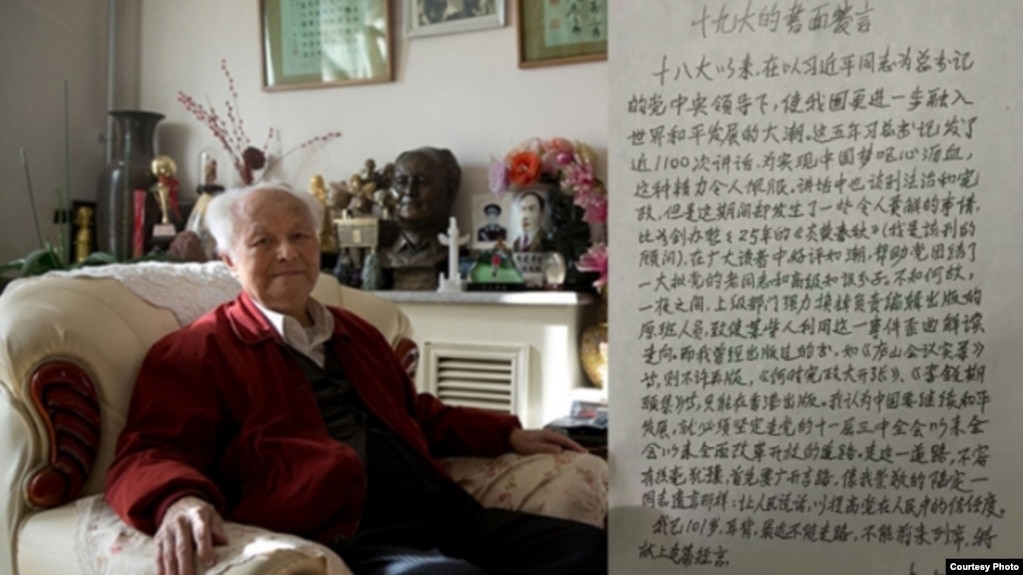 十九大的书面发言
十八大以来,在以习近平同志为总书记
的党中央领导下,使我国更进一步融入
世界和平发展的大潮。这五年习总书记发了
近1100次讲话,为实现中国梦呕心沥血,
这种精力令人佩服。讲话中也谈到法治和宪
政,但是这期间却发生了一些令人费解的事情,
比如创办整整25年的《炎黄春秋》(我是该刊的
顾问),在广大读者中好评如潮,帮助党团结了
一大批党的老同志和高级知识分子。不知何故,
一夜之间,上级部门强力换掉负责编辑出版的
原班人员,致使某些人利用这一事件歪曲解读
走向。而我曾经出版过的书,如《庐山会议实录》
等,则不许再版,《何时宪政大开张》、《李锐期
颐集》等,只能在香港出版。我认为中国要继续和平
发展,就必须坚定走党的十一届三中全会以来全
会以来全面改革开放的道路。走这一道路,不容
有丝毫犹豫,首先要广开言路,像我崇敬的陆定一
同志遗言那样:让人民说话,以提高党在人民中的信任度。
我已101岁,耳背,最近不能走路,不能前来列席,特
献上先篇短言。
Courtesy Photo